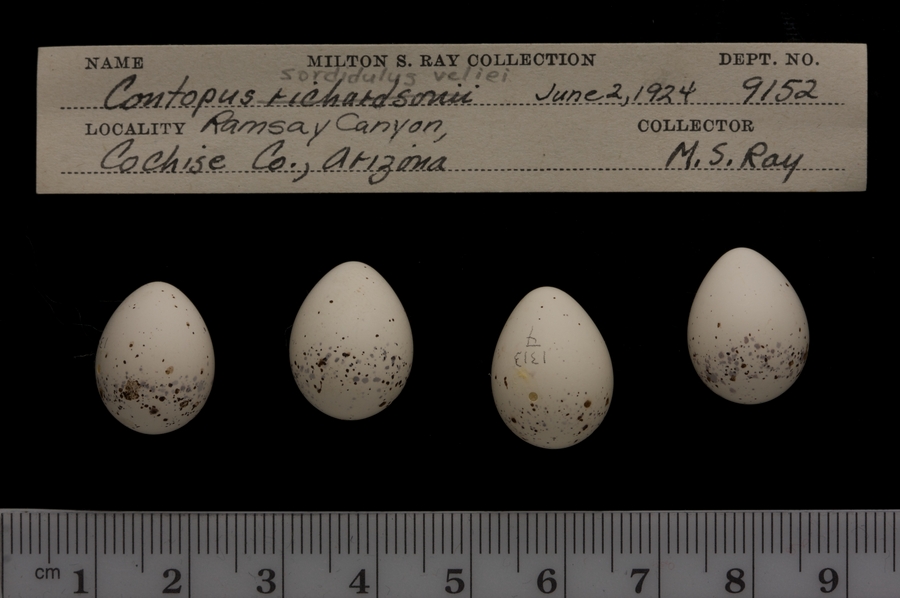 NAME MILTON S. RAY COLLECTION DEPT. NO.
sordidulus veliei
Contopus richardsonii June 2, 1924 9152
LOCALITY Ramsay Canyon, COLLECTOR
Cochise Co., Arizona M. S. Ray
1313
4
cm 1 2 3 4 5 6 7 8 9